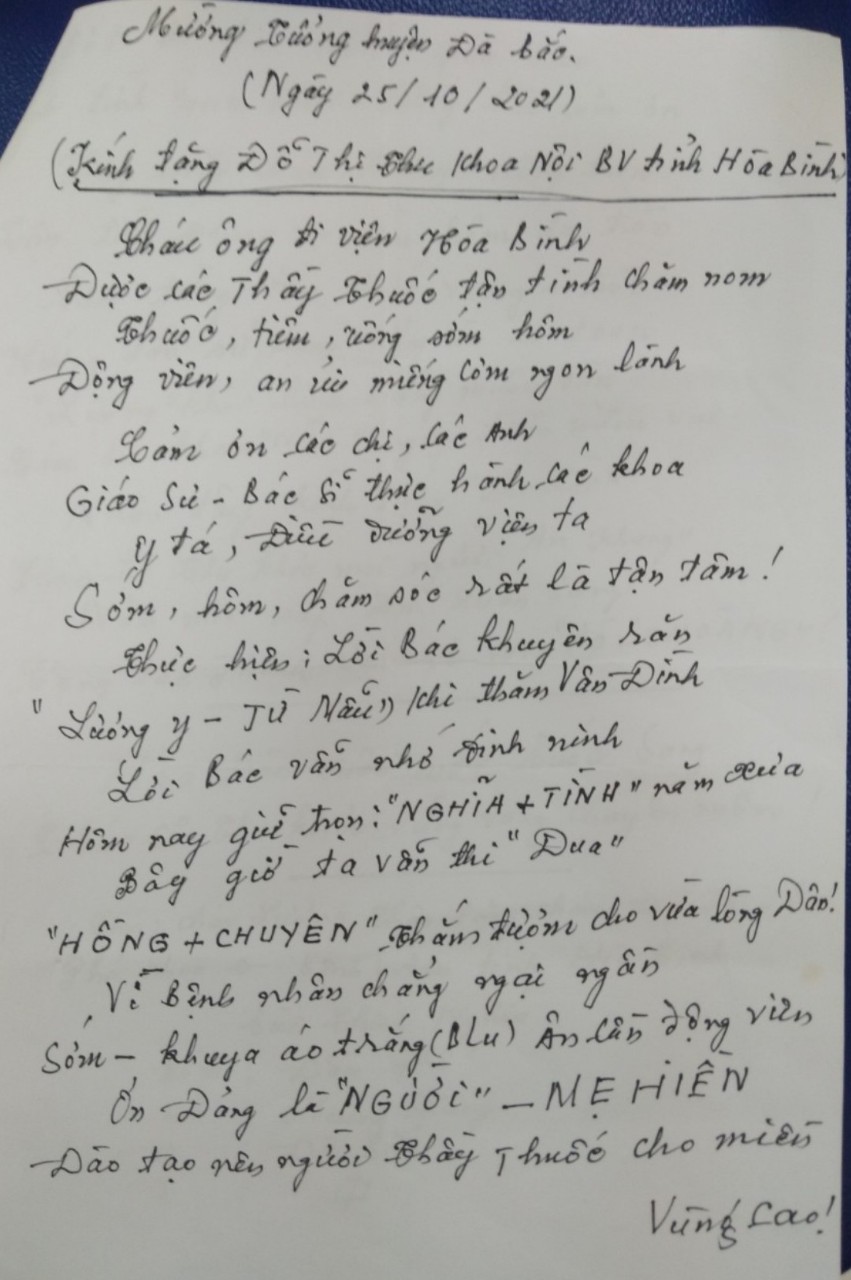 Mường Tưởng huyện Đà bắc.
(Ngày 25/10/2021)
(Kính tặng Đỗ Thị Thu Khoa Nội BV tỉnh Hòa Bình)
Cháu ông đi viện Hòa Bình
Được các Thầy Thuốc tận tình chăm nom
Thuốc, tiêm, uống sớm hôm
Động viên, an ủi miếng cơm ngon lành
Cảm ơn các chị, các Anh
Giáo Sư - Bác Sĩ thực hành các khoa
Y tá, Điều dưỡng viện ta
Sớm, hôm, chăm sóc rất là tận tâm!
Thực hiện: Lời Bác khuyên răn
"Lương y - TỪ Mẫu") khi thăm Vân Đình
Lời Bác vẫn nhớ đinh ninh
Hôm nay giữ trọn: "NGHĨA + TÌNH" năm xưa
Bây giờ ta vẫn thi "Đua"
"HỒNG + CHUYÊN" Thắm đượm cho vừa lòng Dân!
Vì Bệnh nhân chẳng ngại ngần
Sớm - khuya áo trắng (Blu) Ân cần động viên
Ơn Đảng là "NGƯỜI" - MẸ HIỀN
Đào tạo nên người Thầy Thuốc cho miền
Vùng Cao!